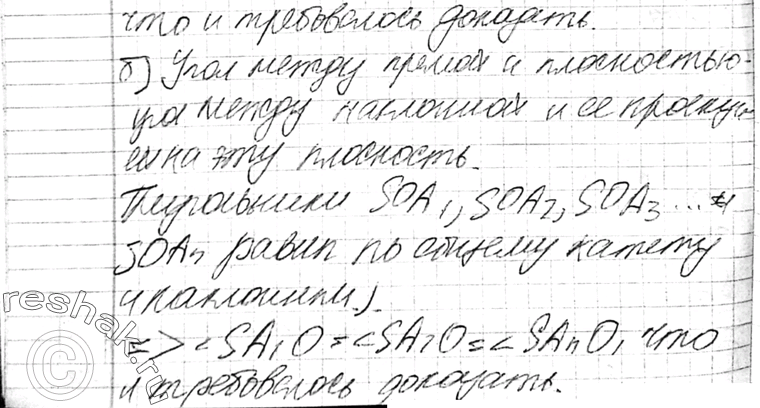 что и требовалось доказать.
б) Угол между прямой и плоскостью-
угол между наклонной и ее проекци-
ей на эту плоскость.
Треугольники SOA₁, SOA₂, SOA₃ ... и
SOAₙ равны по общему катету
и наклонным).
=> <SA₁O = <SA₂O = <SAₙO, что
и требовалось доказать.
© reshak.ru